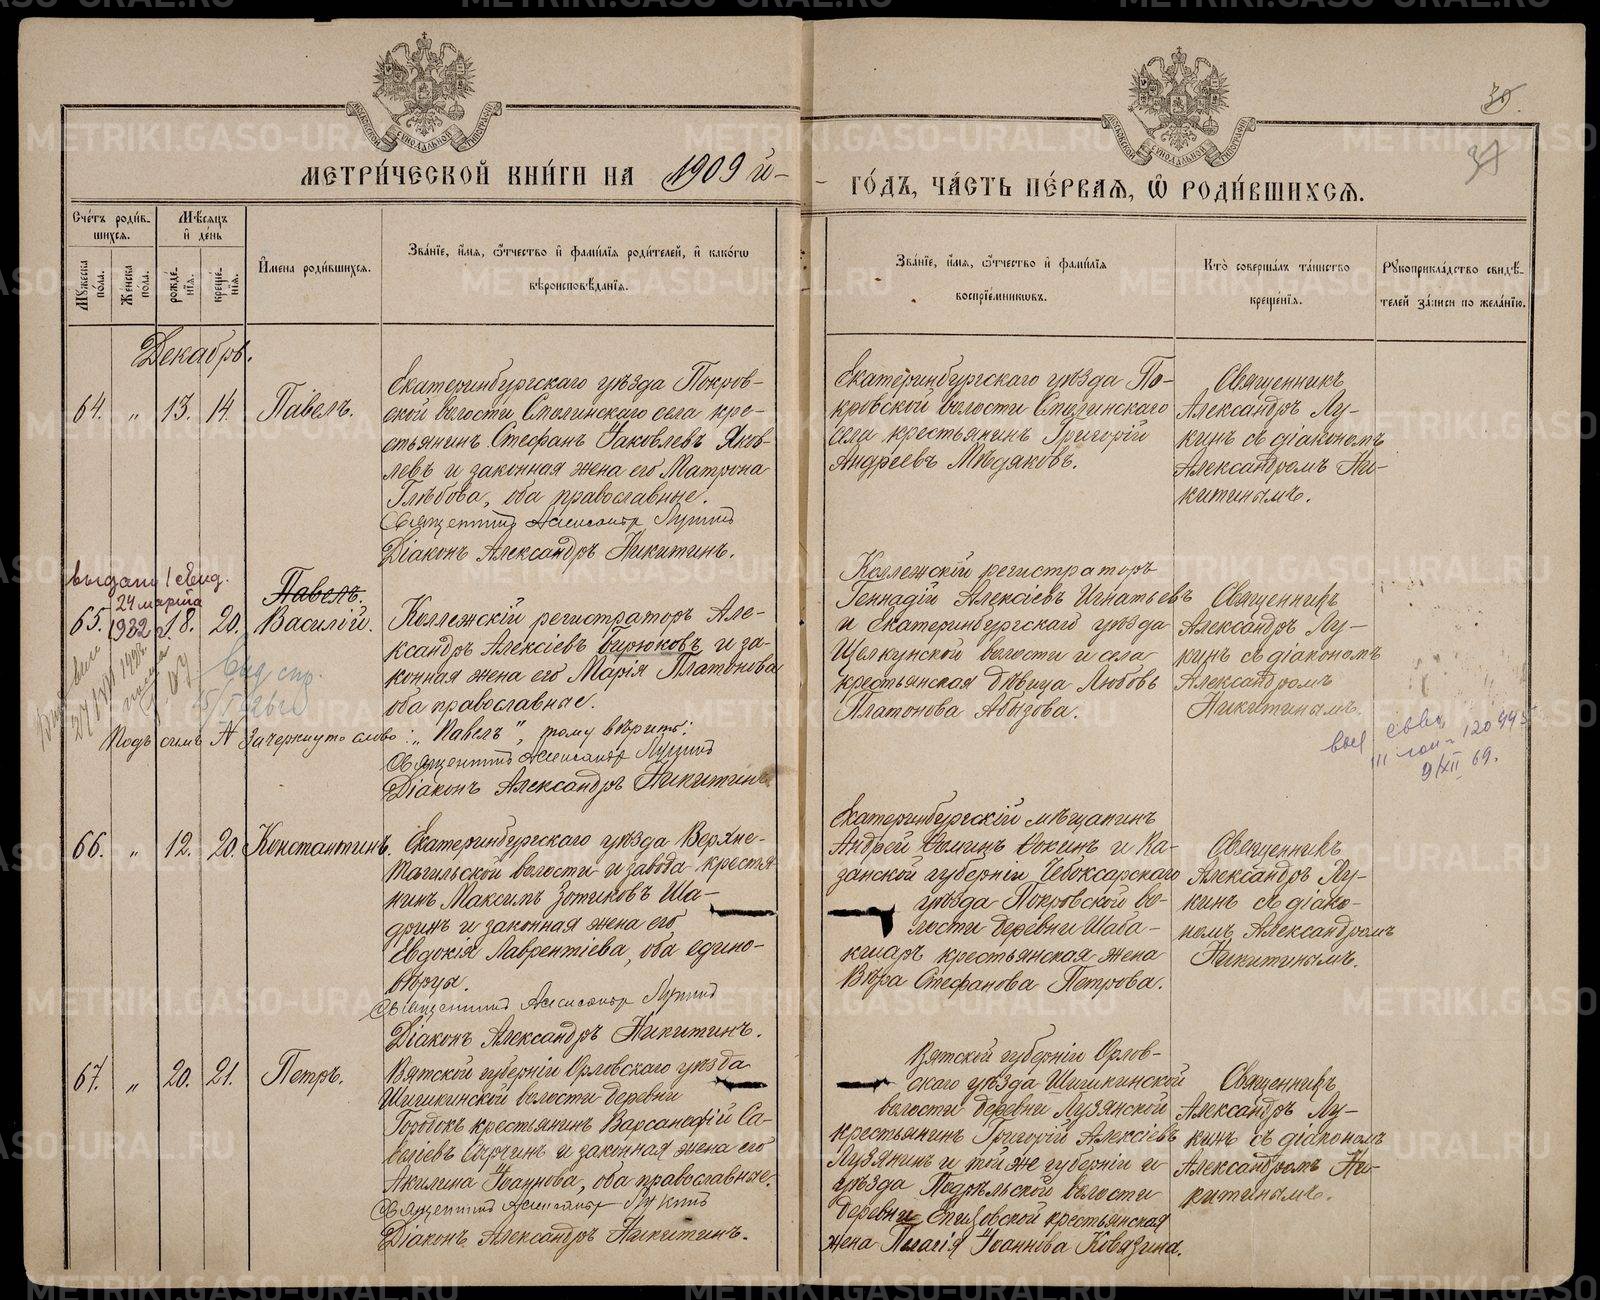 МЕТРИ́ЧЕСКОЙ КНИ́ГИ НА 1909 й
ГО́ДЪ, ЧА́СТЬ ПЕ́РВАЯ, Ѽ РОДИ́ВШИХСЯ.
30.
37
Сче́тъ роди́в-
шихся.
Мѣсяцъ
и҆ де́нь
Мꙋ́жеска
по́ла.
Же́нска
по́ла.
рожде́-
нїя.
креще́-
нїя.
И҆мена роди́вшихся.
Зва́нїе, и҆́мя, ѻ҆́тчество и҆ фами́лїя роди́телей, и҆ како́гѡ
вѣроисповѣ́данїя.
Зва́нїе, и҆́мя, ѻ҆́тчество и҆ фами́лїя
воспрїе́мникѡвъ.
Кто̀ соверша́лъ та́инство
креще́нїя.
Рꙋкоприкла́дство свидѣ́-
телей за́писи по жела́нїю.
Декабрь.
64. „ 13. 14. Павелъ.
Екатеринбургскаго уѣзда Покров-
ской волости Смолинскаго села кре-
стьянинъ Стефанъ Іаковлевъ Яков-
левъ и законная жена его Матрона
Глѣбова, оба православные.
Священникъ Александръ Лукинъ
Діаконъ Александръ Никитинъ.
Екатеринбургскаго уѣзда По-
кровской волости Смолинскаго
села крестьянинъ Григорій
Андреевъ Мѣдяковъ.
Священникъ
Александръ Лу-
кинъ съ діакономъ
Александромъ Ни-
китинымъ.
Выдано 1 свид.
24 марта
1932 г.
Павелъ.
65. 18. 20. Василій.
Коллежскій регистраторъ Але-
ксандръ Алексіевъ Бирюковъ и за-
конная жена его Марія Платонова
оба православные.
Подъ симъ № зачеркнуто слово: „Павелъ", тому вѣрить:
Священникъ Александръ Лукинъ
Діаконъ Александръ Никитинъ
Коллежскій регистраторъ
Геннадій Алексіевъ Игнатьевъ
и Екатеринбургскаго уѣзда
Щелкунской волости и села
крестьянская дѣвица Любовь
Платонова Абызова.
Священникъ
Александръ Лу-
кинъ съ діакономъ
Александромъ
Никитинымъ.
9/XII 69.
66. „ 12. 20. Константинъ.
Екатеринбургскаго уѣзда Верхне-
Тагильской волости и завода крестья
нинъ Максимъ Зотиковъ Ша-
дринъ и законная жена его
Евдокія Лаврентіева, оба едино-
вѣрцы.
Священникъ Александръ Лукинъ
Діаконъ Александръ Никитинъ.
Екатеринбургскій мѣщанинъ
Андрей Ѳоминъ Ѳокинъ и Ка-
занской губерніи Чебоксарскаго
уѣзда Покровской во-
лости деревни Шаба-
кшаръ крестьянская жена
Вѣра Стефанова Петрова.
Священникъ
Александръ Лу-
кинъ съ діако-
номъ Александромъ
Никитинымъ.
67. „ 20. 21. Петръ.
Вятской губерніи Орловскаго уѣзда
Шишкинской волости деревни
Городокъ крестьянинъ Варсанофій Са-
веліевъ и законная жена его
Акилина Іоаннова, оба православные.
Священникъ Александръ Лукинъ
Діаконъ Александръ Никитинъ.
Вятской губерніи Орлов-
скаго уѣзда Шишкинской
волости деревни Лузянской
крестьянинъ Григорій Алексіевъ
Лузянинъ и той же губерніи и
уѣзда Подрѣльской волости
деревни крестьянская
жена Пелагія Іоаннова Ковязина.
Священникъ
Александръ Лу-
кинъ съ діакономъ
Александромъ Ни-
китинымъ.
METRIKI.GASO-URAL.RU